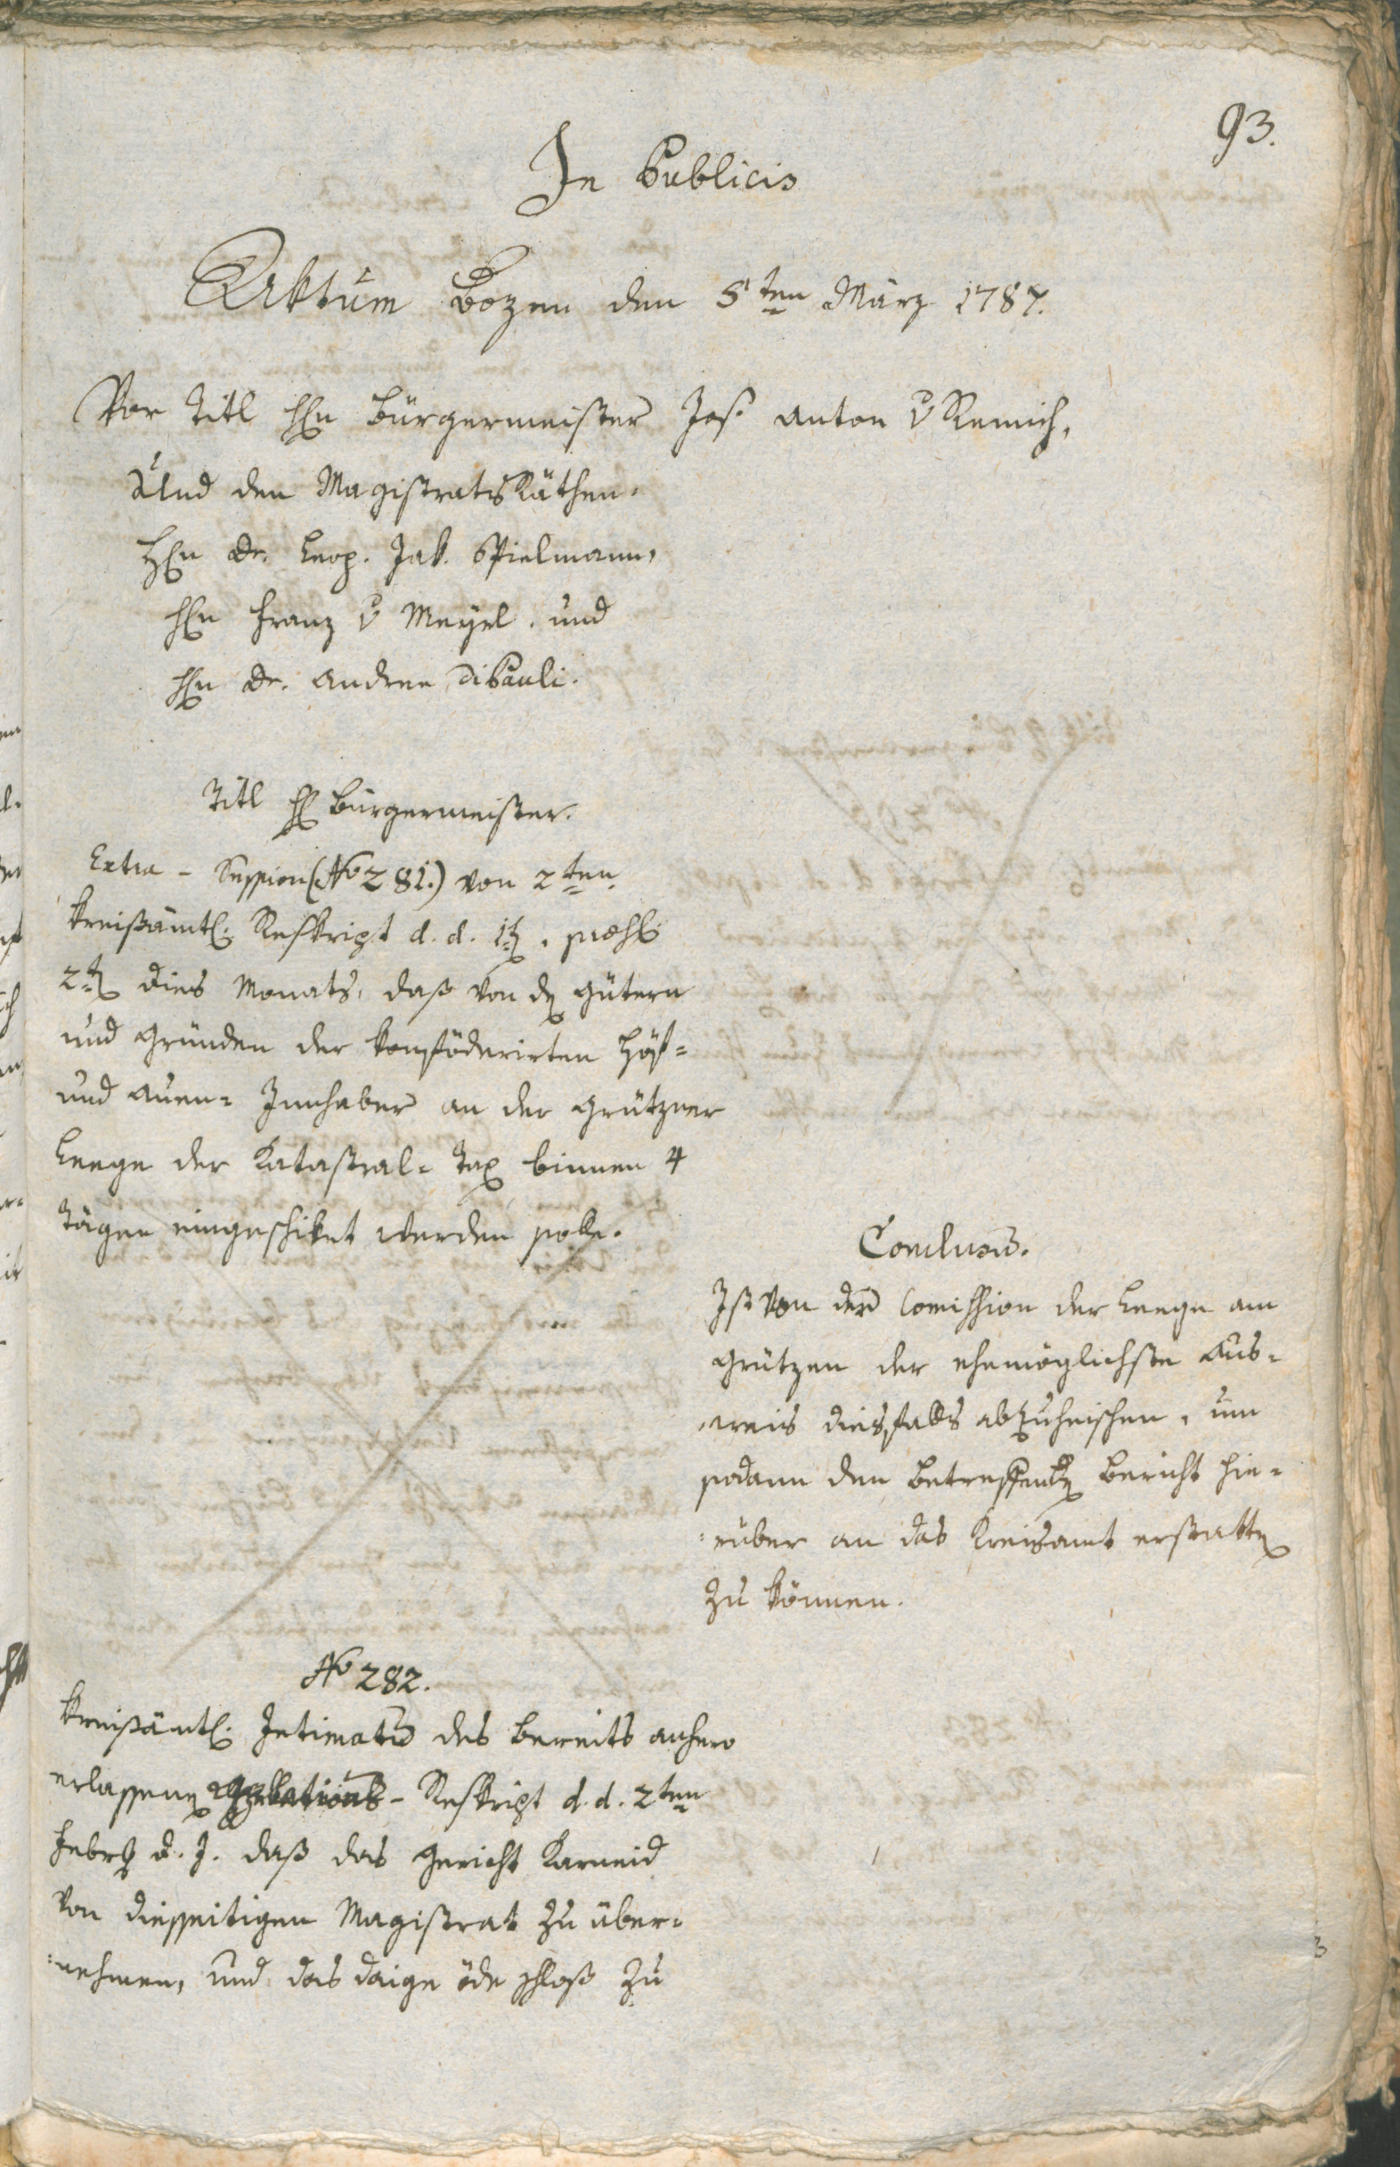 93.
In Publicis
Aktum Bozen den 5ten März 1787.
Vor Titl HEn Bürgermeister Jos. Anton v Remich,
Und den Magistrats Räthen.
HEn Dr. Leop. Jak. Spielmann,
HEn Franz v Mayrl. und
HEn Dr. Andree DiPauli.
Titl H Bürgermeister.
Extra - Session (No 281.) von 2ten
Kreißämtl. Reskript d. d. 1t. 
2t dies Monats, daß von dn Gütern
und Gründen der konföderirten Höf=
und Auen= Innhaber an der Grützner
Leege der Katastral= Tax binnen 4
Tägen eingeschiket werden solle.
Conclusum.
Ist von der Comission der Leege am
Grützen der ehemöglichste Aus=
weis diesfalls abzuheischen, um
sodann den betreffendn Bericht hie=
rüber an das Kreisamt erstattn
zu können.
No 282.
Kreißämtl. Intimatum des bereits anhero
erlassenen - Reskript d. d. 2ten
Febr. d. J. daß das Gericht Karneid
von diesseitigen Magistrat zu über=
nehmen, und das daige öde schloß zu